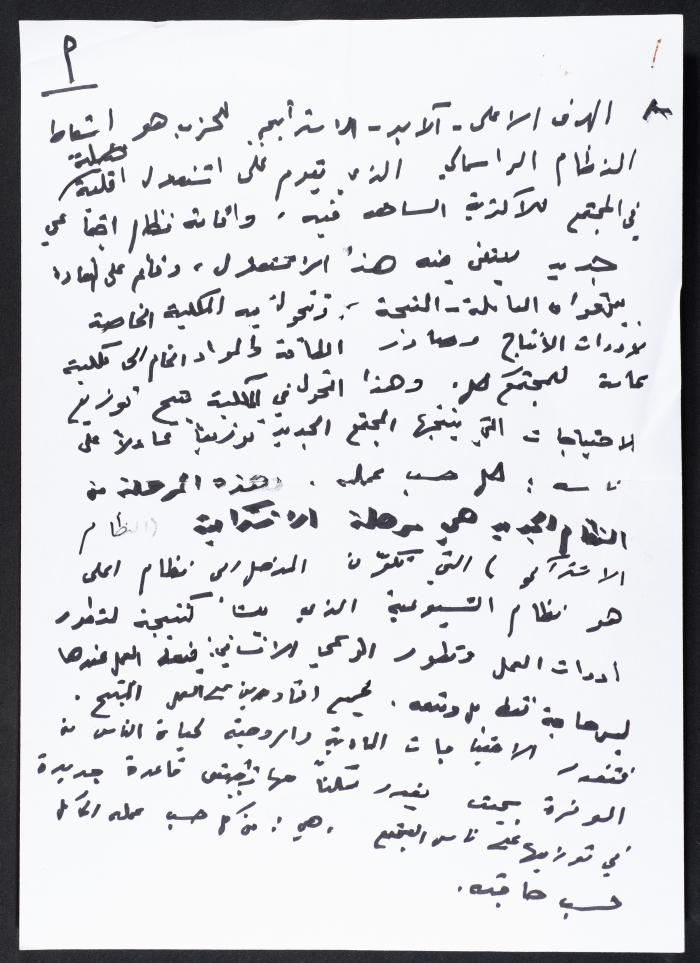 م
الهدف الاعلى - الابعد - الاستراتيجي للحزب هو اسقاط
النظام الرأسمالي الذي يقوم على استغلال اقلية ضئيلة
في المجتمع للأكثرية الساحقة فيه، واقامة نظام اجتماعي
جديد ينتفي فيه هذا الاستغلال، وقائم على
العاملة - المنتجة، وتتحول فيه الملكية الخاصة
لأدوات الأنتاج ومصادر الطاقة والمواد الخام الى ملكية
عامة للمجتمع كله. وهذا التحول في الملكية يتيح توزيع
الاحتياجات التي ينتجها المجتمع الجديد توزيعاً عادلاً على
ناسه: كل حسب عمله. وهذه المرحلة من
النظام الجديد هي مرحلة الاشتراكية (النظام
الاشتراكي) التي تكوّن المدخل الى نظام اعلى
هو نظام الشيوعية الذي ينشأ كنتيجة لتطور
ادوات العمل وتطور الوعي الانساني: العمل عندها
ليس حاجة فقط بل ومتعة. لجميع القادرين على العمل المنتج.
الاحتياجات المادية والروحية لحياة الناس من
الوفرة بحيث يغدو ممكناً قاعدة جديدة
في توزيعها على ناس المجتمع. هي: من كل حسب عمله الى كل
حسب حاجته.